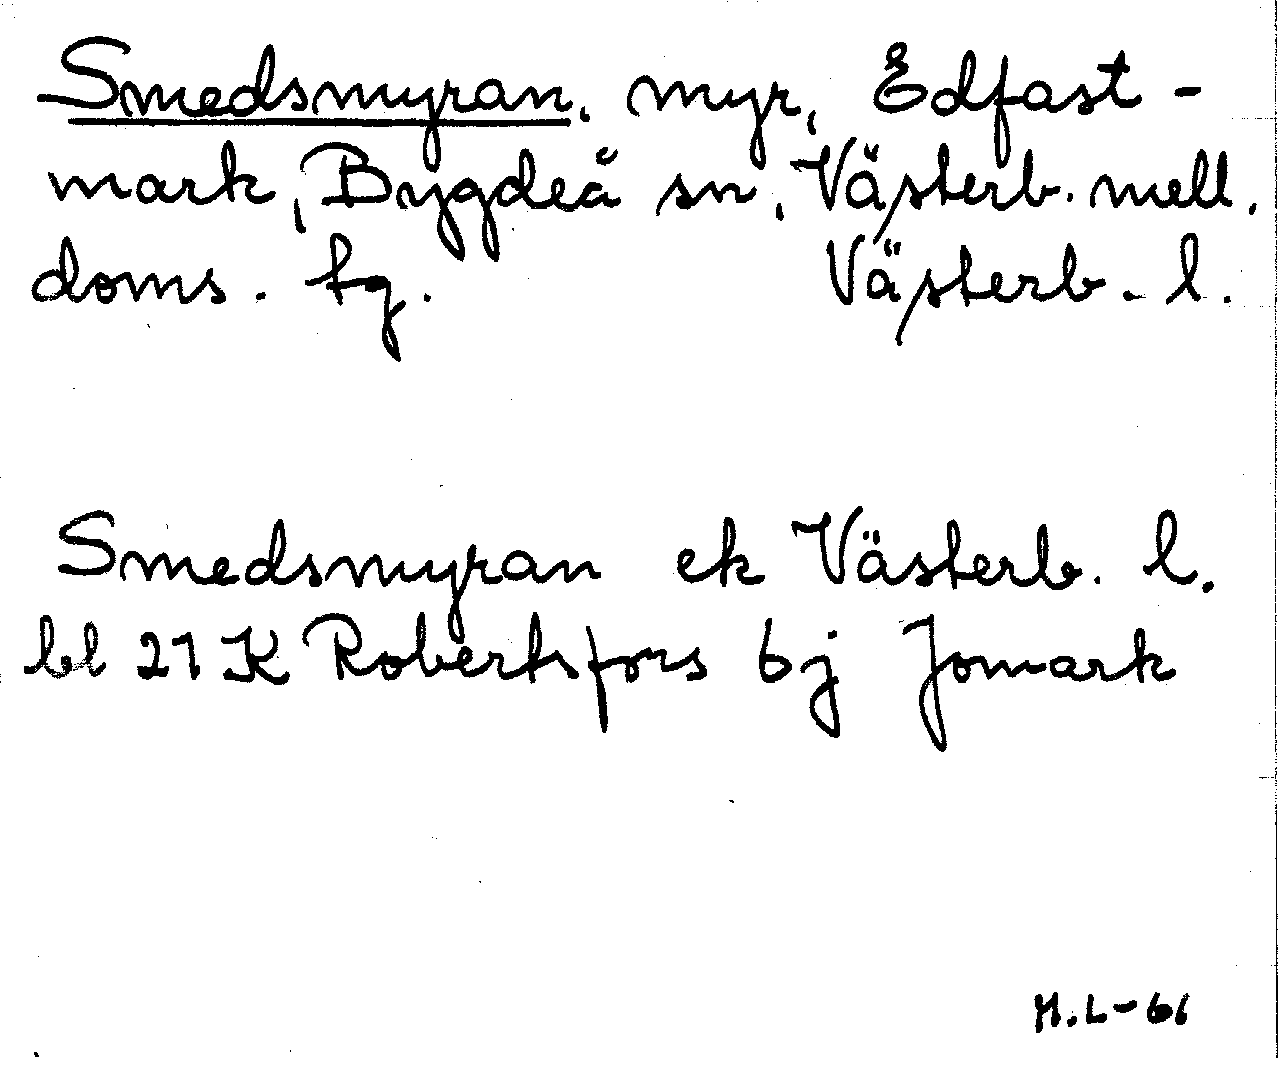 Smedsmyran, myr, Edfast-
mark, Bygdeå sn, Västerb. mell.
doms. fg. Västerb. l.
Smedsmyran ek Västerb. l.
bl 21 K Robertsfors 6j Jomark
H.L-66